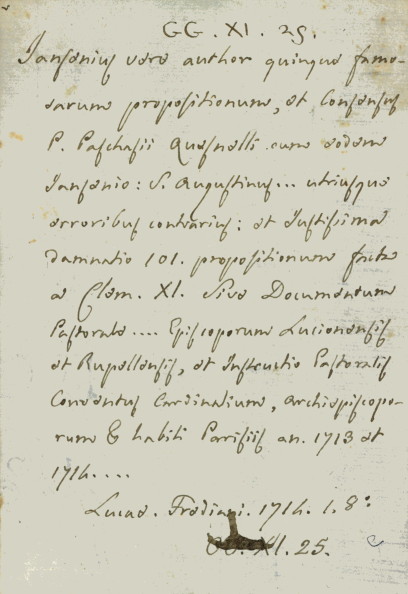 GG. XI. 25.
Jansenius vere author quinque famo-
sarum propositionum, et Consensus
P. Paschasii Quesnelli cum eodem
Jansenio: S. Augustinus... utriusque
erroribus contrarius: et Justissima
damnatio 101. propositionum facta
a Clem. XI. Sive Documentum
Pastorale.... Episcoporum Lucionensis
et Rupellensis, et Instructio Pastoralis
Conventus Cardinalium, Archiepiscopo-
rum & habiti Parisiis an. 1713 et
1714....
Lucae. Frediani. 1714. 1. 8:
XI. 25.